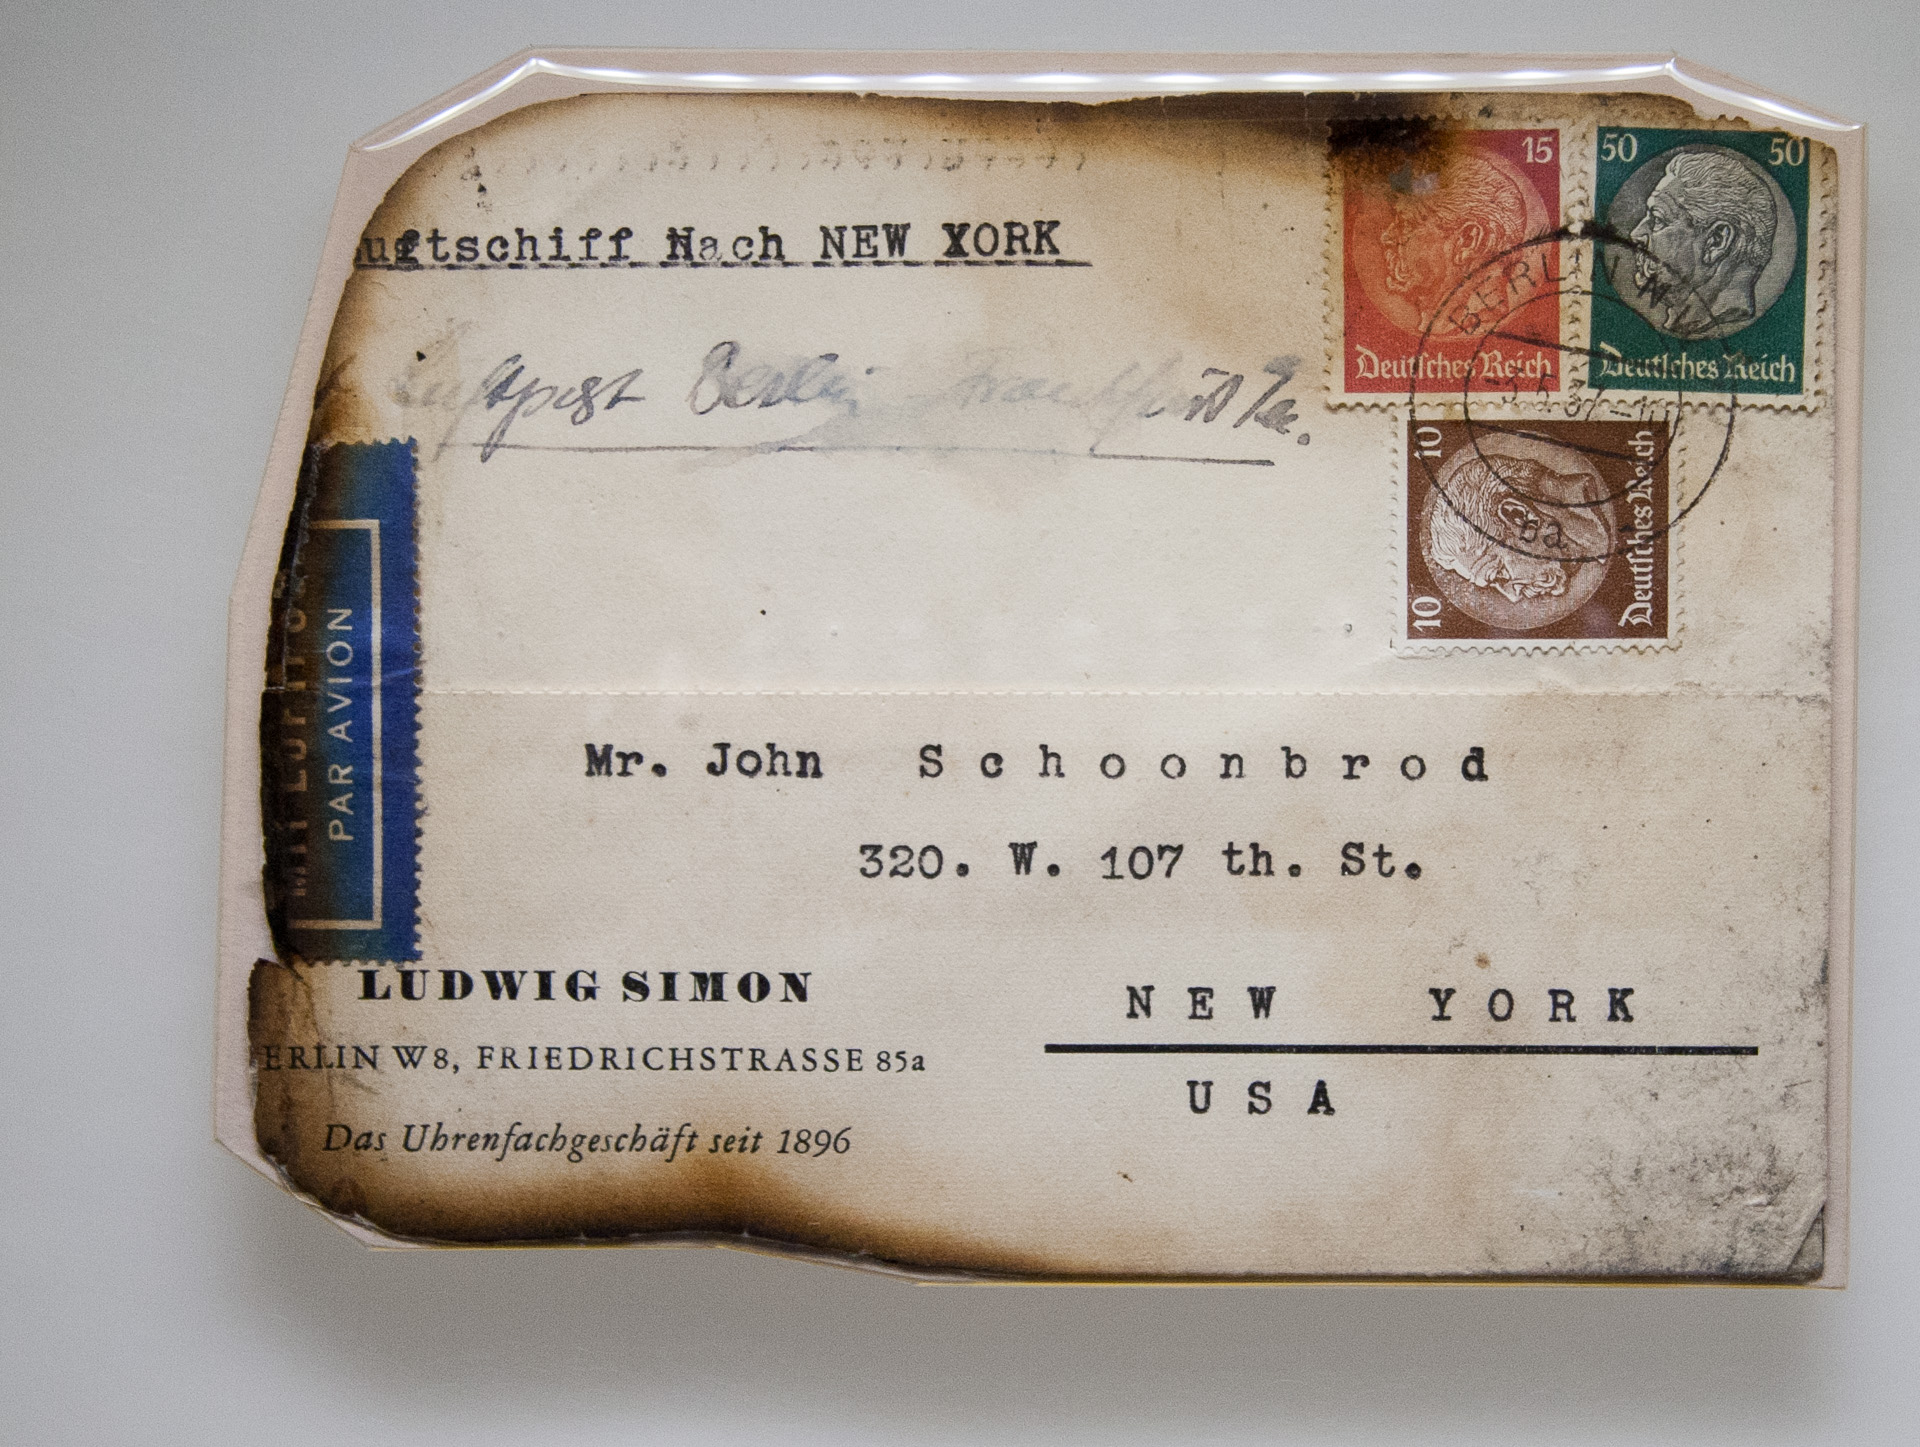 uftschiff Nach NEW YORK
Luftpost Berlin Frankfurt
15
Deutsches Reich
50 50
Deutsches Reich
BERLIN
10 10
Deutsches Reich
MIT LUFTPO
PAR AVION
Mr. John Schoonbrod
320. W. 107 th. St.
NEW YORK
USA
LUDWIG SIMON
ERLIN W8, FRIEDRICHSTRASSE 85a
Das Uhrenfachgeschäft seit 1896